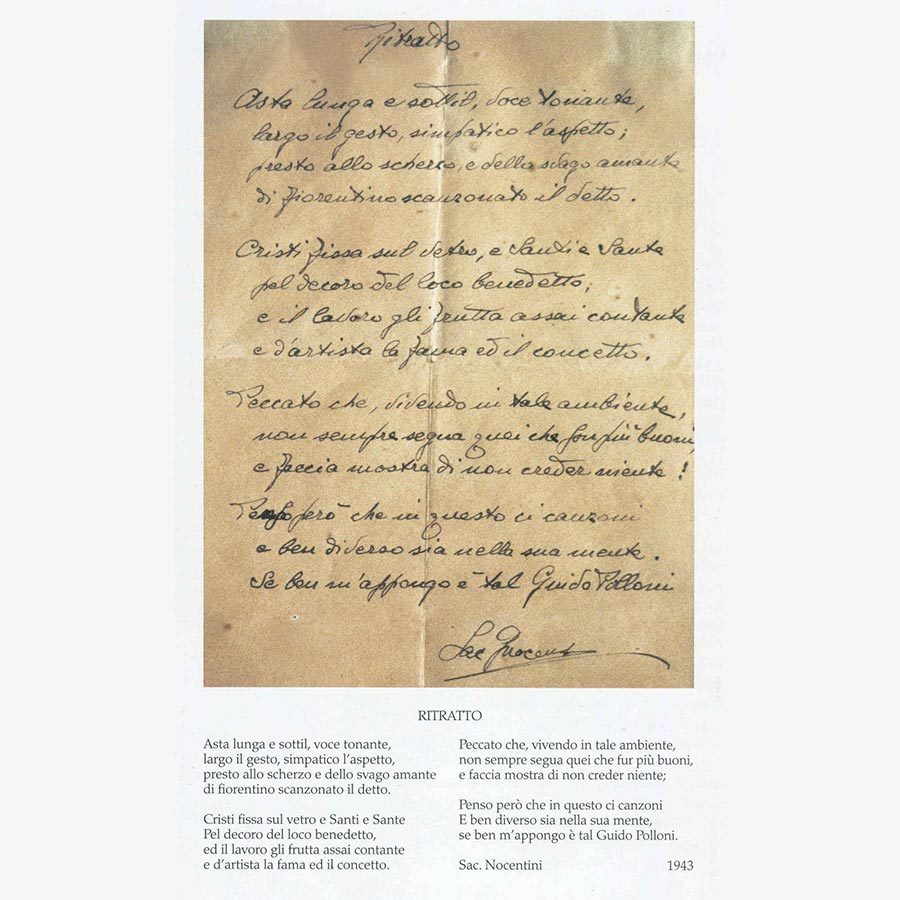 Ritratto
Asta lunga e sottil, voce tonante,
largo il gesto, simpatico l'aspetto;
presto allo scherzo, e dello svago amante
di fiorentino scanzonato il detto.
Cristi fissa sul vetro, e Santi e Sante
pel decoro del loco benedetto;
e il lavoro gli frutta assai contante
e d'artista la fama ed il concetto.
Peccato che, vivendo in tale ambiente,
non sempre segua quei che fur più buoni
e faccia mostra di non creder niente!
Penso però che in questo ci canzoni
e ben diverso sia nella sua mente.
Se ben m'appongo è tal Guido Polloni
Sac Nocent
RITRATTO
Asta lunga e sottil, voce tonante,
largo il gesto, simpatico l'aspetto,
presto allo scherzo e dello svago amante
di fiorentino scanzonato il detto.
Cristi fissa sul vetro e Santi e Sante
Pel decoro del loco benedetto,
ed il lavoro gli frutta assai contante
e d'artista la fama ed il concetto.
Peccato che, vivendo in tale ambiente,
non sempre segua quei che fur più buoni,
e faccia mostra di non creder niente;
Penso però che in questo ci canzoni
E ben diverso sia nella sua mente,
se ben m'appongo è tal Guido Polloni.
Sac. Nocentini 1943